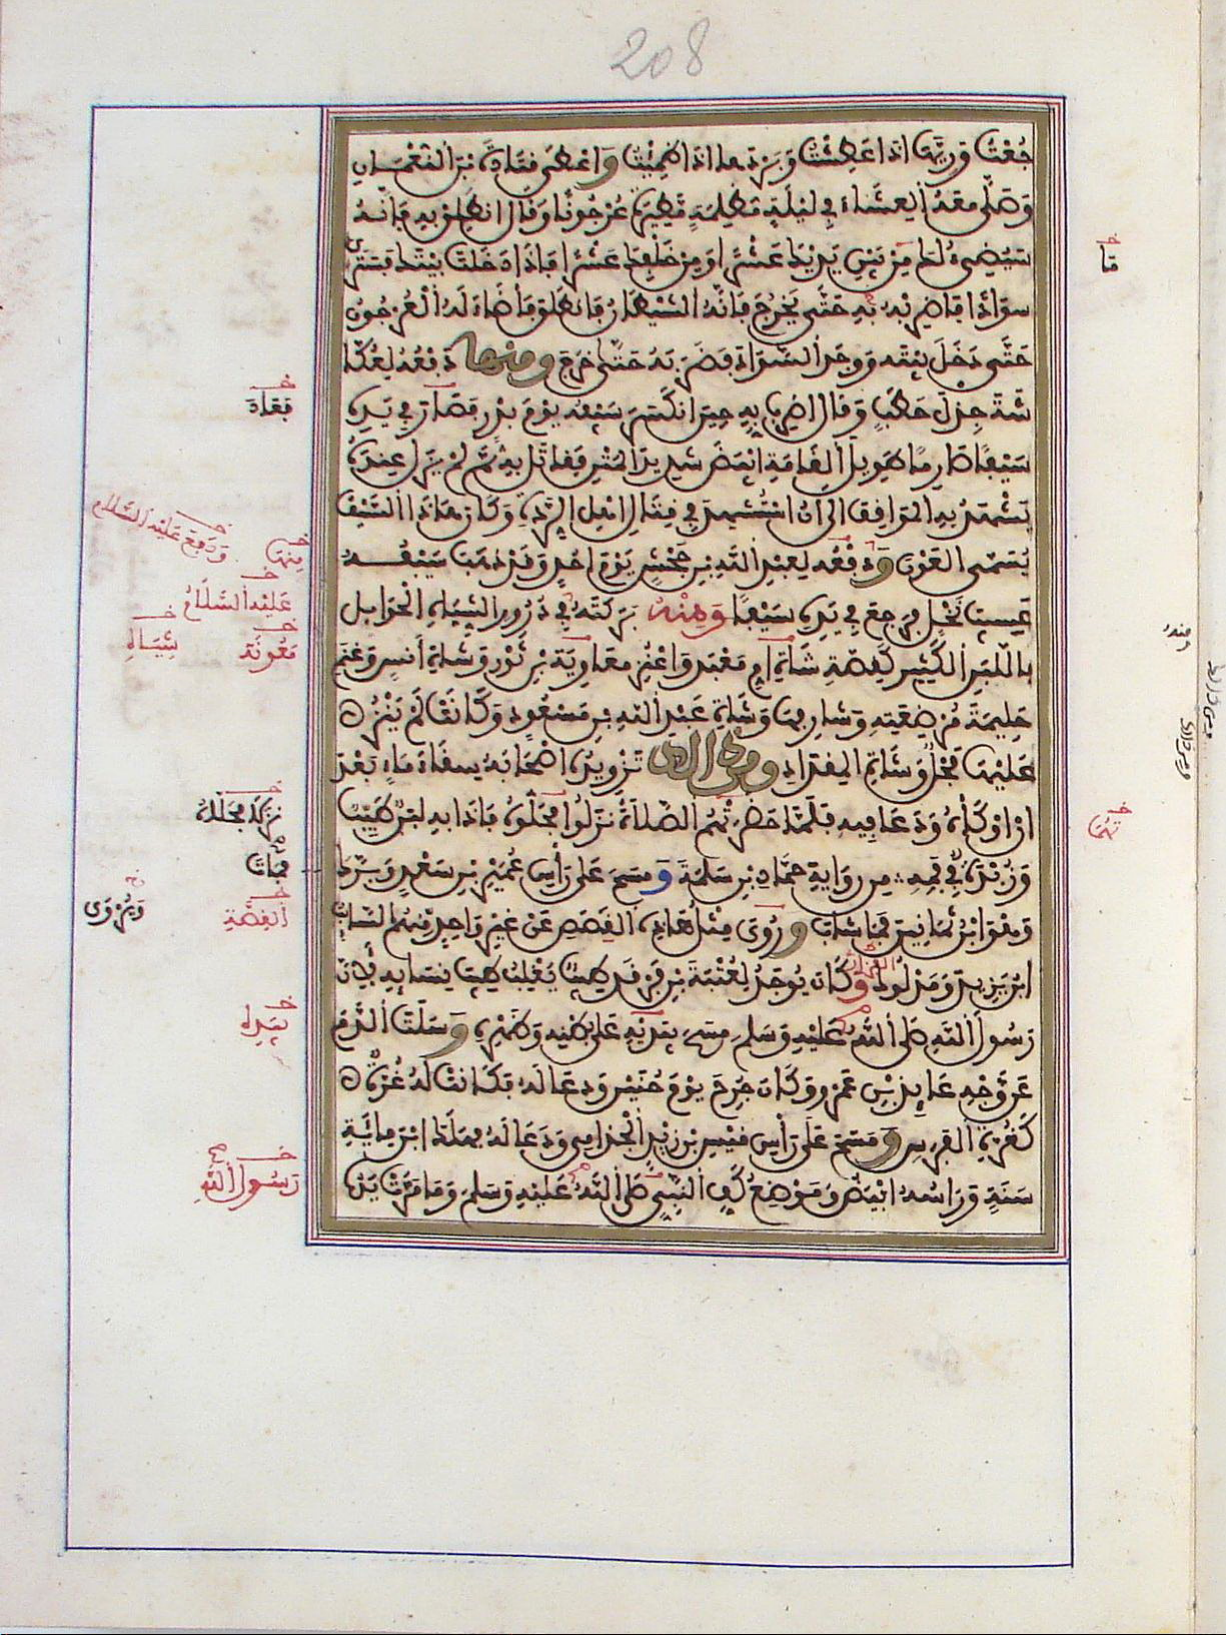 208
جُعْتَ وَرِيَّهَا اذَا عَطِشْتَ وَبَرْدَهَا اذَا ظَمِئْتَ وَاعْطَى قَتَادَةَ بْنَ النُّعْمَانِ
وَصَلَّى مَعَهُ الْعِشَاءَ فِي لَيْلَةٍ مُظْلِمَةٍ مَطِيرَةٍ عُرْجُونًا وَقَالَ انْطَلِقْ بِهِ فَإِنَّهُ
سَيُضِيءُ لَكَ مِنْ بَيْنِ يَدَيْكَ عَشْرًا وَمِنْ خَلْفِكَ عَشْرًا فَإِذَا دَخَلْتَ بَيْتَكَ فَسَتَرَى
سَوَادًا فَاضْرِبْهُ بِهِ حَتَّى يَخْرُجَ فَإِنَّهُ الشَّيْطَانُ فَانْطَلَقَ فَأَضَاءَ لَهُ الْعُرْجُونُ
حَتَّى دَخَلَ بَيْتَهُ وَوَجَدَ السَّوَادَ فَضَرَبَهُ حَتَّى خَرَجَ وَمِنْهَا دَفْعُهُ لِعُكَّا
شَةَ جِزْلَ حَطَبٍ وَقَالَ اضْرِبْ بِهِ حِينَ انْكَسَرَ سَيْفُهُ يَوْمَ بَدْرٍ فَصَارَ فِي يَدِهِ
سَيْفًا صَارِمًا طَوِيلَ الْقَامَةِ ابْيَضَ شَدِيدَ الْمَتْنِ فَقَاتَلَ بِهِ ثُمَّ لَمْ يَزَلْ عِنْدَهُ
يَشْهَدُ بِهِ الْمَوَاقِفَ الَى انْ اسْتُشْهِدَ فِي قِتَالِ اهْلِ الرِّدَّةِ وَكَانَ هَاذَا السَّيْفُ
يُسَمَّى الْعَوْنَ وَدَفْعُهُ لِعَبْدِ اللَّهِ بْنِ جَحْشٍ يَوْمَ احُدٍ وَقَدْ ذَهَبَ سَيْفُهُ
عَسِيبَ نَخْلٍ فَرَجَعَ فِي يَدِهِ سَيْفًا وَمِنْهُ بَرَكَتُهُ فِي دُرُورِ الشِّيَاهِ الْحَوَائِلِ
بِاللَّبَنِ الْكَثِيرِ كَقِصَّةِ شَاةِ امِّ مَعْبَدٍ وَاعْنُزِ مُعَاوِيَةَ بْنِ ثَوْرٍ وَشَاةِ أَنَسٍ وَغَنَمِ
حَلِيمَةَ مُرْضِعَتِهِ وَشَارِفِهَا وَشَاةِ عَبْدِ اللَّهِ بْنِ مَسْعُودٍ وَكَانَتْ لَمْ يَنْزُ
عَلَيْهَا فَحْلٌ وَشَاةِ الْمِقْدَادِ وَمِنْ ذَالِكَ تَزْوِيدُهُ اصْحَابَهُ سِقَاءَ مَاءٍ بَعْدَ
ان اوْكَأَهُ وَدَعَا فِيهِ فَلَمَّا حَضَرَتْهُمُ الصَّلَاةُ نَزَلُوا فَحَلُّوهُ فَإِذَا بِهِ لَبَنٌ طَيِّبٌ
وَزُبْدَةٌ فِي فَمِهِ مِنْ رِوَايَةِ حَمَّادِ بْنِ سَلَمَةَ وَمَسَحَ عَلَى رَأْسِ عُمَيْرِ بْنِ سَعْدٍ وَبَرَّكَ
وَهُوَ ابْنُ ثَمَانِينَ فَمَا شَابَ وَرُوِيَ مِثْلُ هَاذِهِ الْقِصَصِ عَنْ غَيْرِ وَاحِدٍ مِنْهُمُ السَّائِبُ
ابْنُ يَزِيدَ وَمَدْلُوكٌ وَكَانَ يُوجَدُ لِعُتْبَةَ بْنِ فَرْقَدٍ طِيبٌ يَغْلِبُ طِيبَ نِسَائِهِ لِأَنَّ
رَسُولَ اللَّهِ صَلَّى اللَّهُ عَلَيْهِ وَسَلَّمَ مَسَحَ بِيَدَيْهِ عَلَى بَطْنِهِ وَظَهْرِهِ وَسَلَتَ الدَّمَ
عَنْ وَجْهِ عَائِذِ بْنِ عَمْرٍو وَكَانَ جُرِحَ يَوْمَ حُنَيْنٍ وَدَعَا لَهُ فَكَانَتْ لَهُ غُرَّةٌ
كَغُرَّةِ الْفَرَسِ وَمَسَحَ عَلَى رَأْسِ قَيْسِ بْنِ زَيْدٍ الْجُذَامِيِّ وَدَعَا لَهُ فَهَلَكَ ابْنَ مِائَةِ
سَنَةٍ وَرَاسُهُ ابْيَضُ وَمَوْضِعُ كَفِّ النَّبِيِّ صَلَّى اللَّهُ عَلَيْهِ وَسَلَّمَ وَمَا مَرَّتْ يَدُهُ
فَعَادَ
وَدَفَعَ عَلَيْهِ السَّلَامُ
مِنْهَا
عَلَيْهِ السَّلَامُ
مَعُونَةَ
شِيَاهِ
فَمَاتَ
وَيُرْوَى
الْقِصَّةِ
بِيَدِهِ
رَسُولِ اللَّهِ